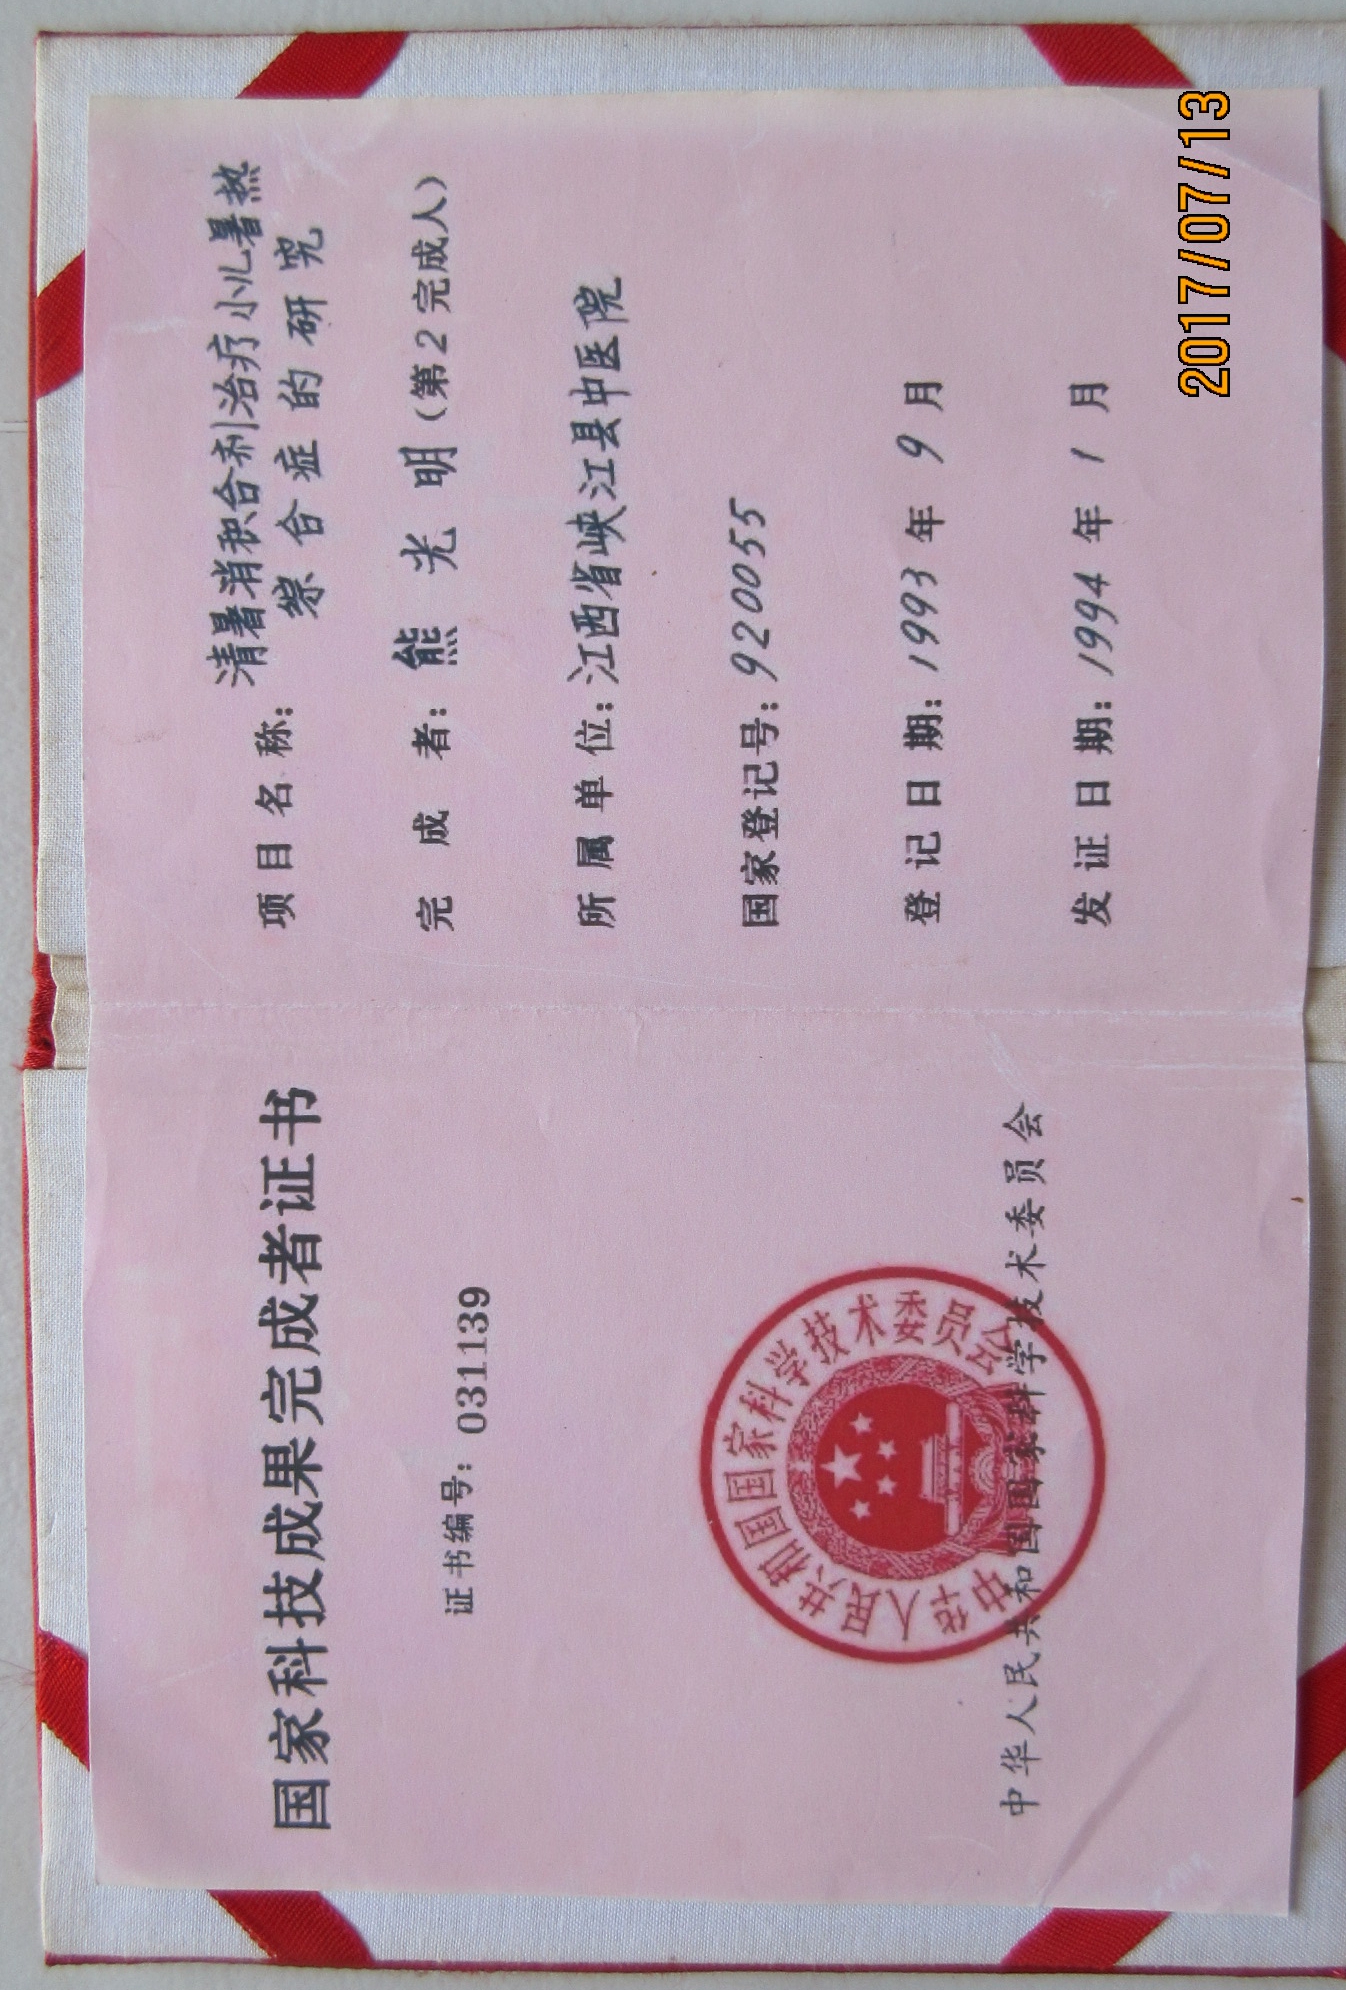 国家科技成果完成者证书
证书编号：031139
中华人民共和国国家科学技术委员会
中华人民共和国国家科学技术委员会
项目名称：清暑消积合剂治疗小儿暑热
综合症的研究
完成者：熊光明（第2完成人）
所属单位：江西省峡江县中医院
国家登记号：920055
登记日期：1993年9月
发证日期：1994年1月
2017/07/13